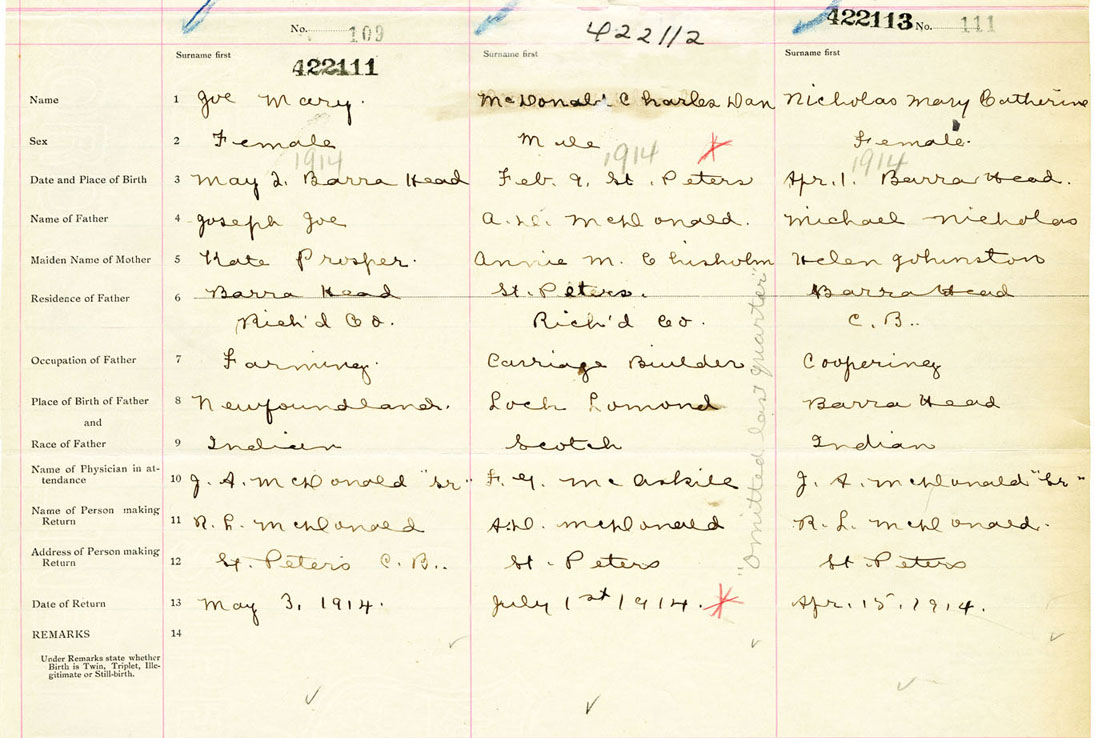 No. 109
422112
422113 No. 111
Surname first
Surname first
Surname first
422111
Name 1 Joe Mary. McDonald Charles Dan Nicholas Mary Catherine
Sex 2 Female Male Female.
1914 1914 1914
Date and Place of Birth 3 May 2. Barra Head Feb. 9. St. Peters Apr. 1. Barra Head.
Name of Father 4 Joseph Joe A. D. McDonald. Michael Nicholas
Maiden Name of Mother 5 Kate Prosper. Annie M. Chisholm Helen Johinston
Residence of Father 6 Barra Head St. Peters. Barra Head
Rich'd Co. Rich'd Co. C. B..
Occupation of Father 7 Farming. Carriage Builder Coopering
Place of Birth of Father 8 Newfoundland. Loch Lomond Barra Head
and
Race of Father 9 Indian Scotch Indian
Name of Physician in at-
tendance 10 J. A. McDonald "Sr" F. G. McAskill J. A. McDonald "Sr"
Name of Person making
Return 11 R. L. McDonald A.D. McDonald R. L. McDonald.
Address of Person making
Return 12 St. Peters C. B.. St. Peters St Peters
Date of Return 13 May 3, 1914. July 1st 1914. Apr. 15. 1914.
REMARKS 14
Under Remarks state whether
Birth is Twin, Triplet, Ille-
gitimate or Still-birth.
"Omitted last quarter"